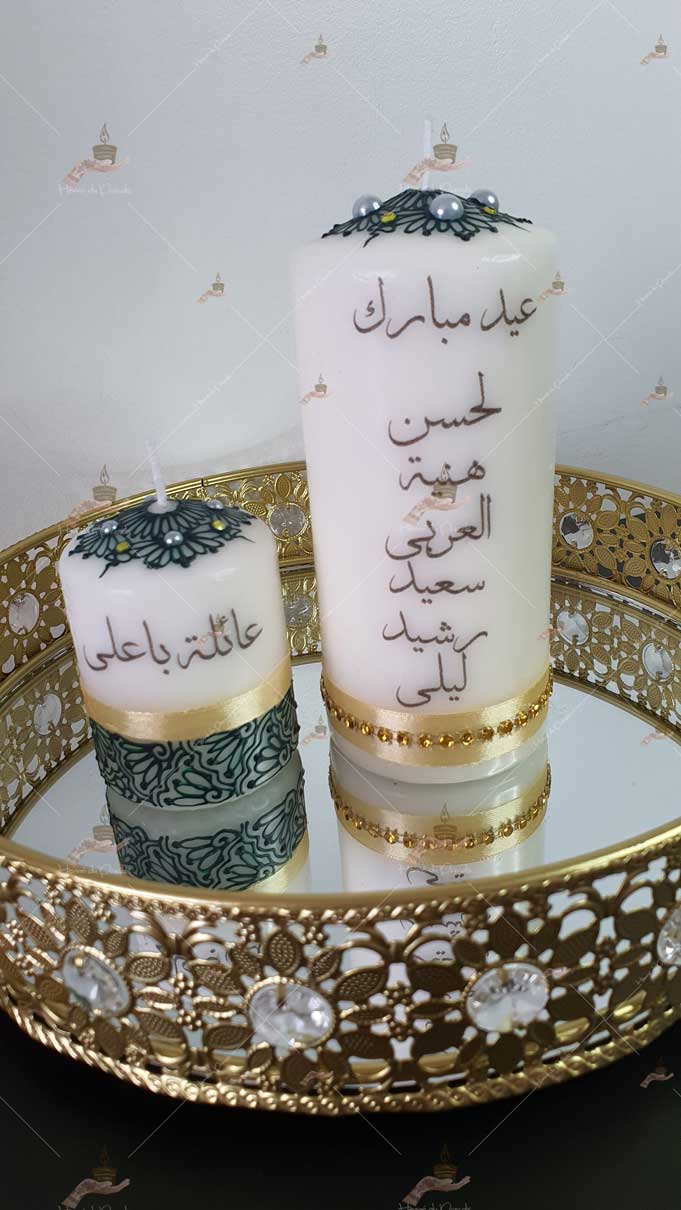 عيد مبارك
لحسن
هنية
العربي
سعيد
رشيد
ليلى
عائلة باعلى